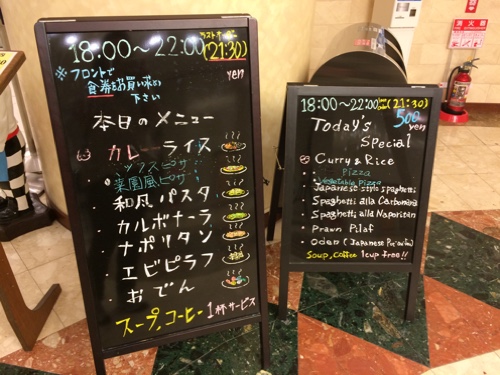 18:00～22:00 ラストオーダー (21:30)
※フロントで
食券をお買い求め
下さい
yen
本日のメニュー
カレーライス
ミックスピザ
菜園風ピザ
・和風パスタ
・カルボナーラ
・ナポリタン
・エビピラフ
・おでん
スープ,コーヒー1杯サービス
18:00～22:00 (21:30)
500
yen
Today's
Special
Curry & Rice
Pizza
Vegetable pizza
Japanese style spaghetti
Spaghetti alla Carbonara
Spaghetti alla Napolitan
・Prawn Pilaf
・Oden (Japanese
Soup, Coffee 1cup free!!
消火器